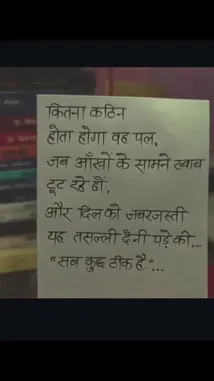 कितना कठिन
होता होगा वह पल,
जब आँखों के सामने ख्वाब
टूट रहे हों,
और दिल को जबरजस्ती
यह तसल्ली देनी पड़े की...
"सब कुछ ठीक है"...